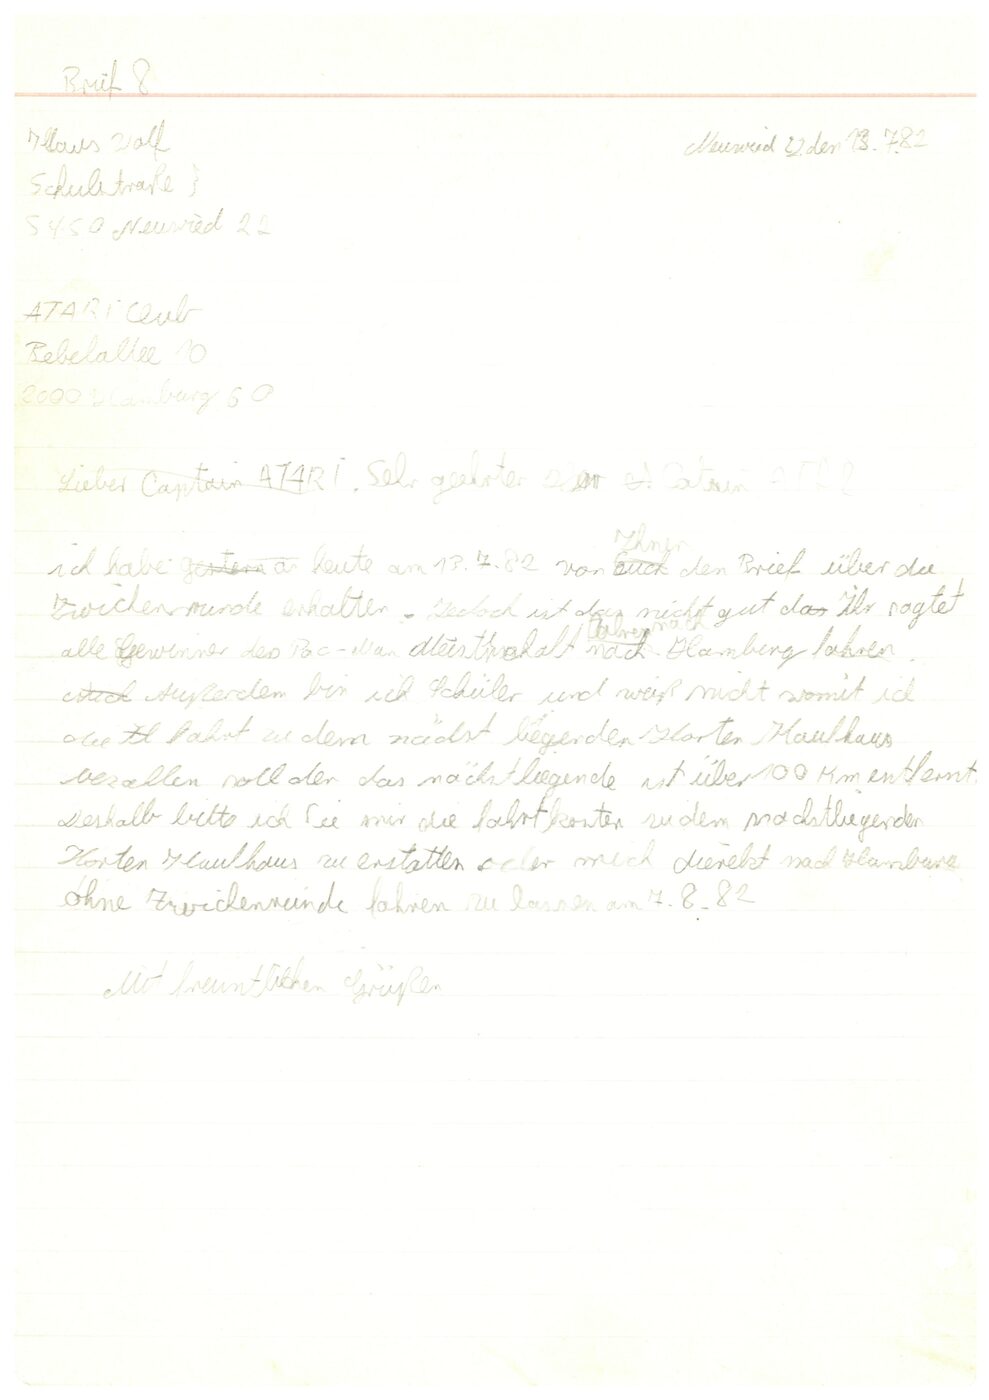 Brief 8
Klaus Wolf
Neuwied 22 den 13.7.82
Schulstraße 3
5450 Neuwied 22
ATARI Club
Bebelallee 10
2000 Hamburg 60
Lieber Captain ATARI. Sehr geehrter
ich habe gestern heute am 13.7.82 von euch Ihnen den Brief über die
Zwichenrunde erhalten. Jedoch ist das nicht gut das Ihr sagtet
alle Gewinner des Pac-Man nach fahren nach Hamburg fahren
Außerdem bin ich Schüler und weiß nicht womit ich
die fahrt zu dem nächst liegenden Horten Kaufhaus
bezallen soll den das nächstliegende ist über 100 Km entfernt.
Deshalb bitte ich Sie mir die fahrtkosten zu dem nächstliegenden
Horten Kaufhaus zu erstatten oder mich direkt nach Hamburg
ohne Zwichenrunde fahren zu lassen am 7.8.82
Mit freuntlichen Grüßen